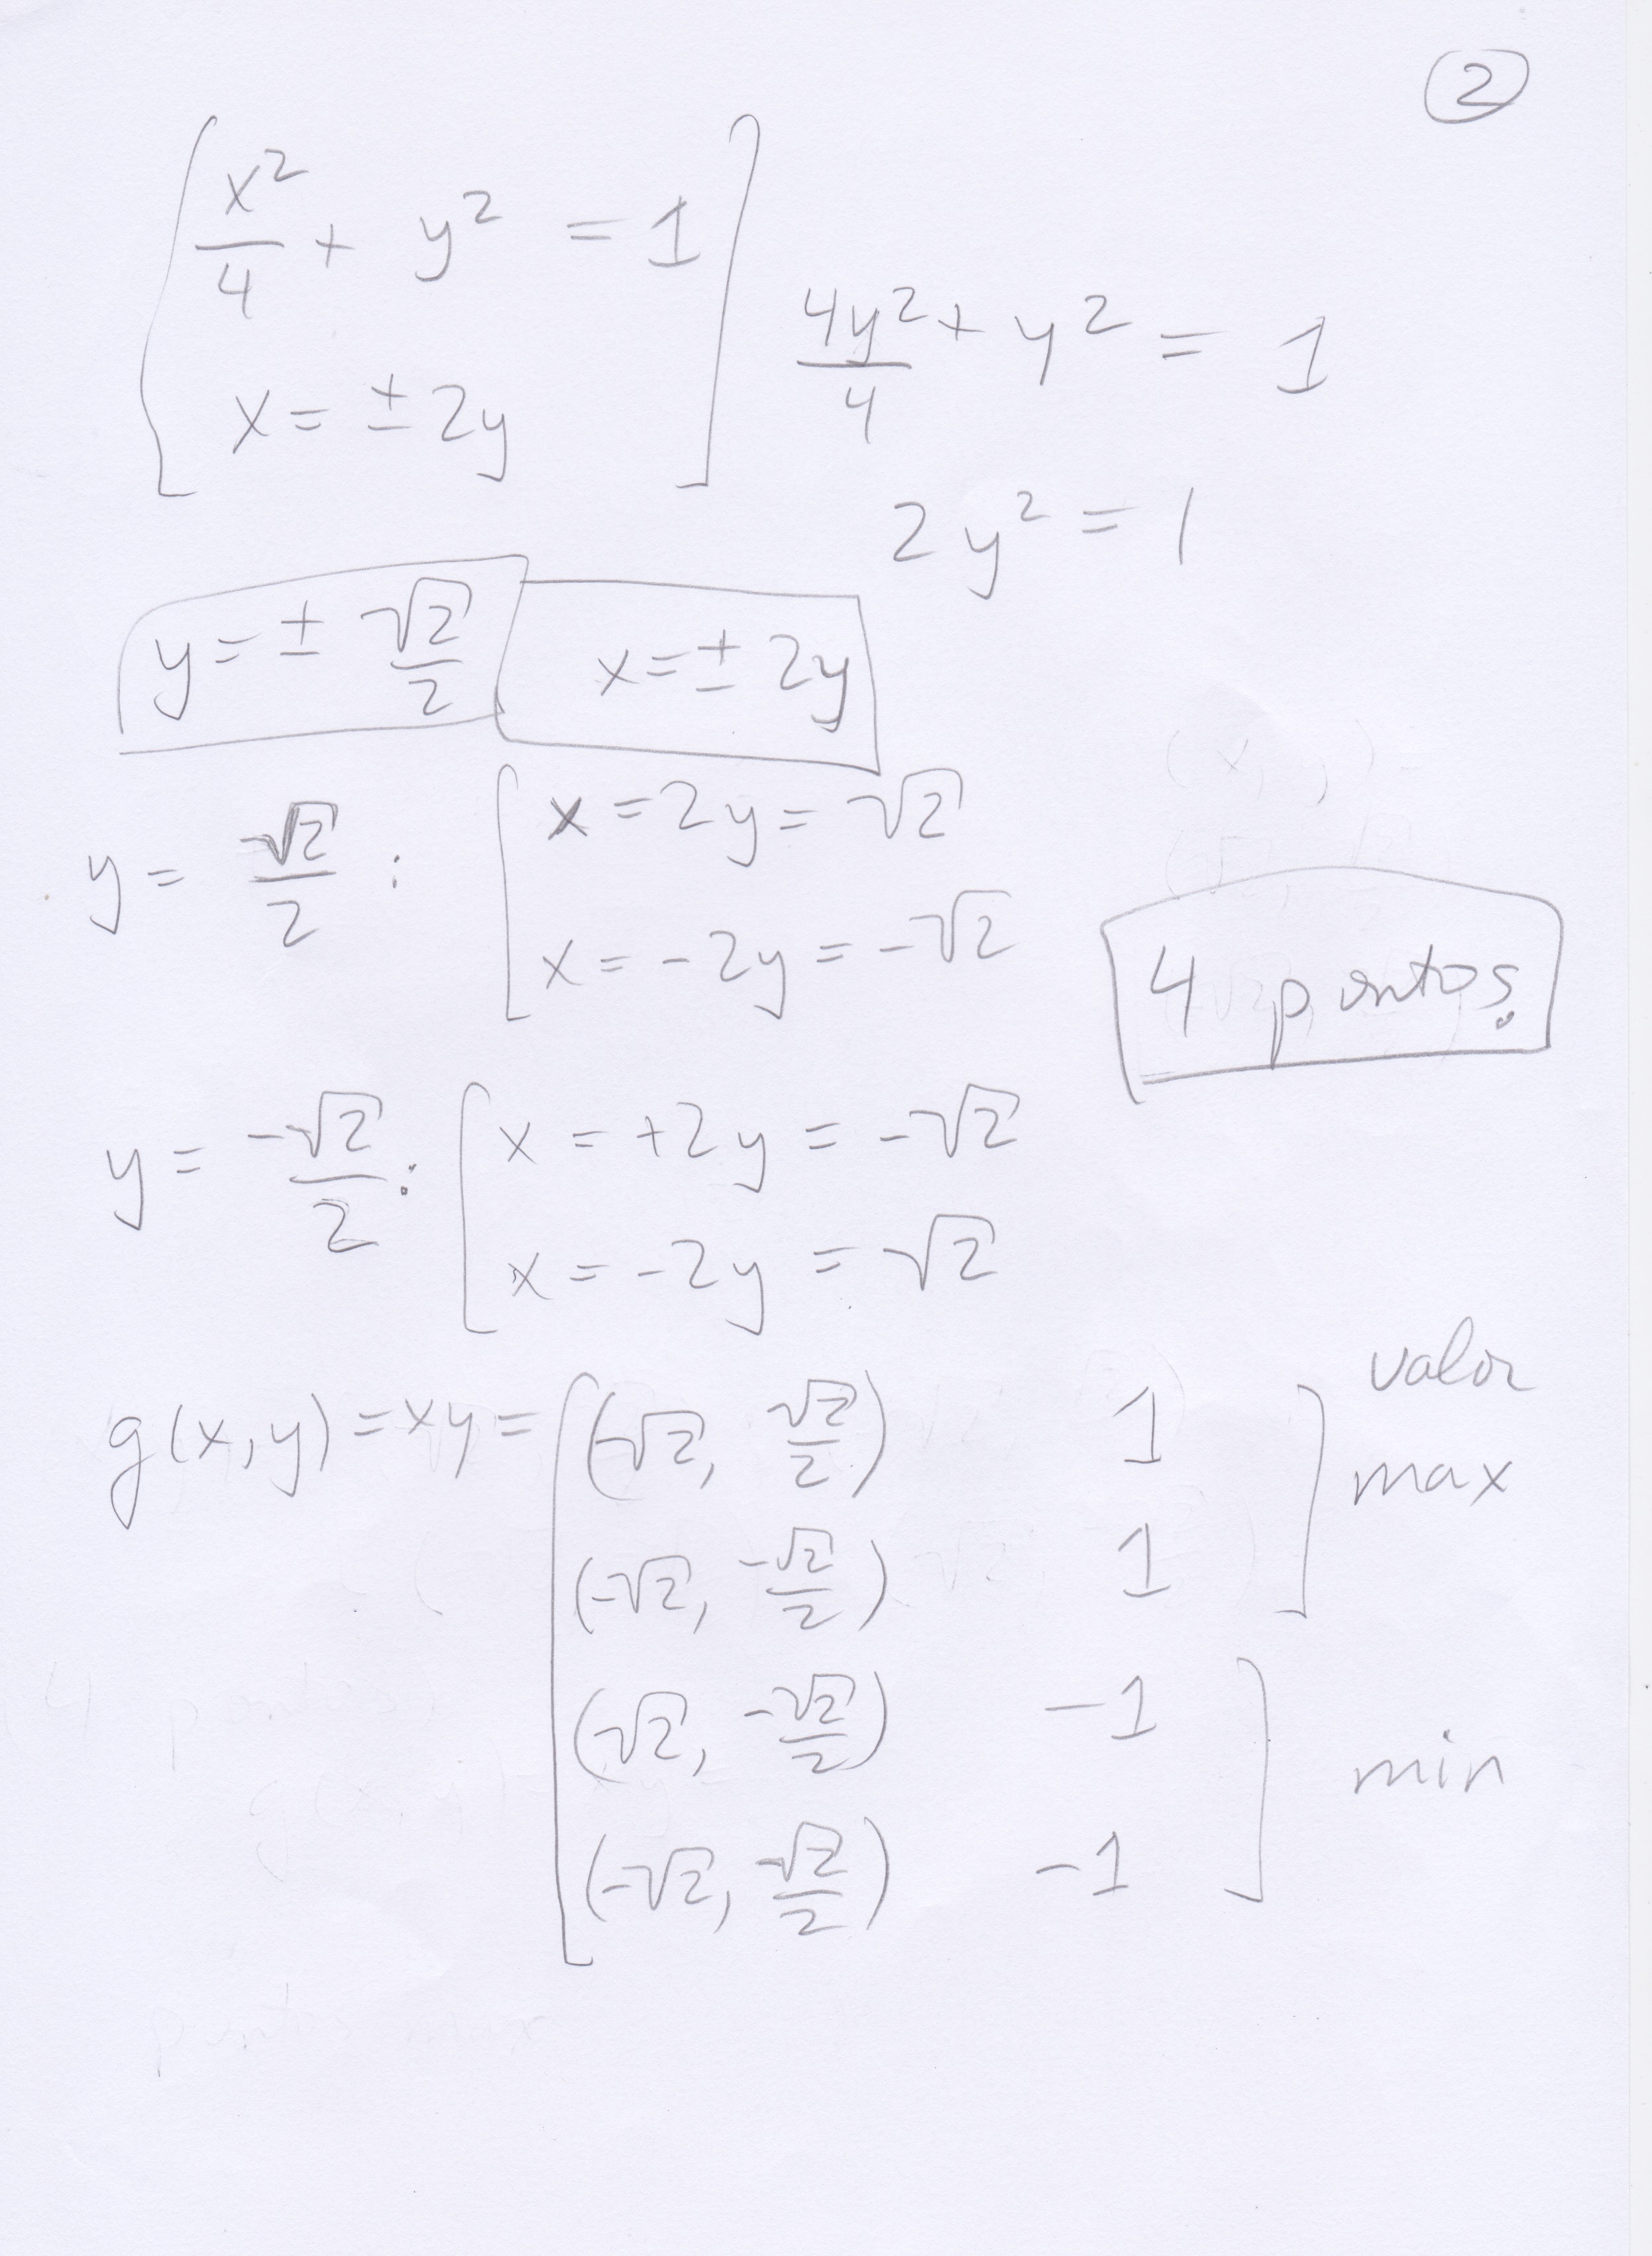 2
x²/4 + y² = 1
x = ± 2y
4y²/4 + y² = 1
2y² = 1
y = ± √2/2
x = ± 2y
y = √2/2 :
x = 2y = √2
x = -2y = -√2
4 pontos
y = -√2/2 :
x = +2y = -√2
x = -2y = √2
g(x,y) = xy =
(√2, √2/2) 1
(-√2, -√2/2) 1
valor
max
(√2, -√2/2) -1
(-√2, √2/2) -1
min